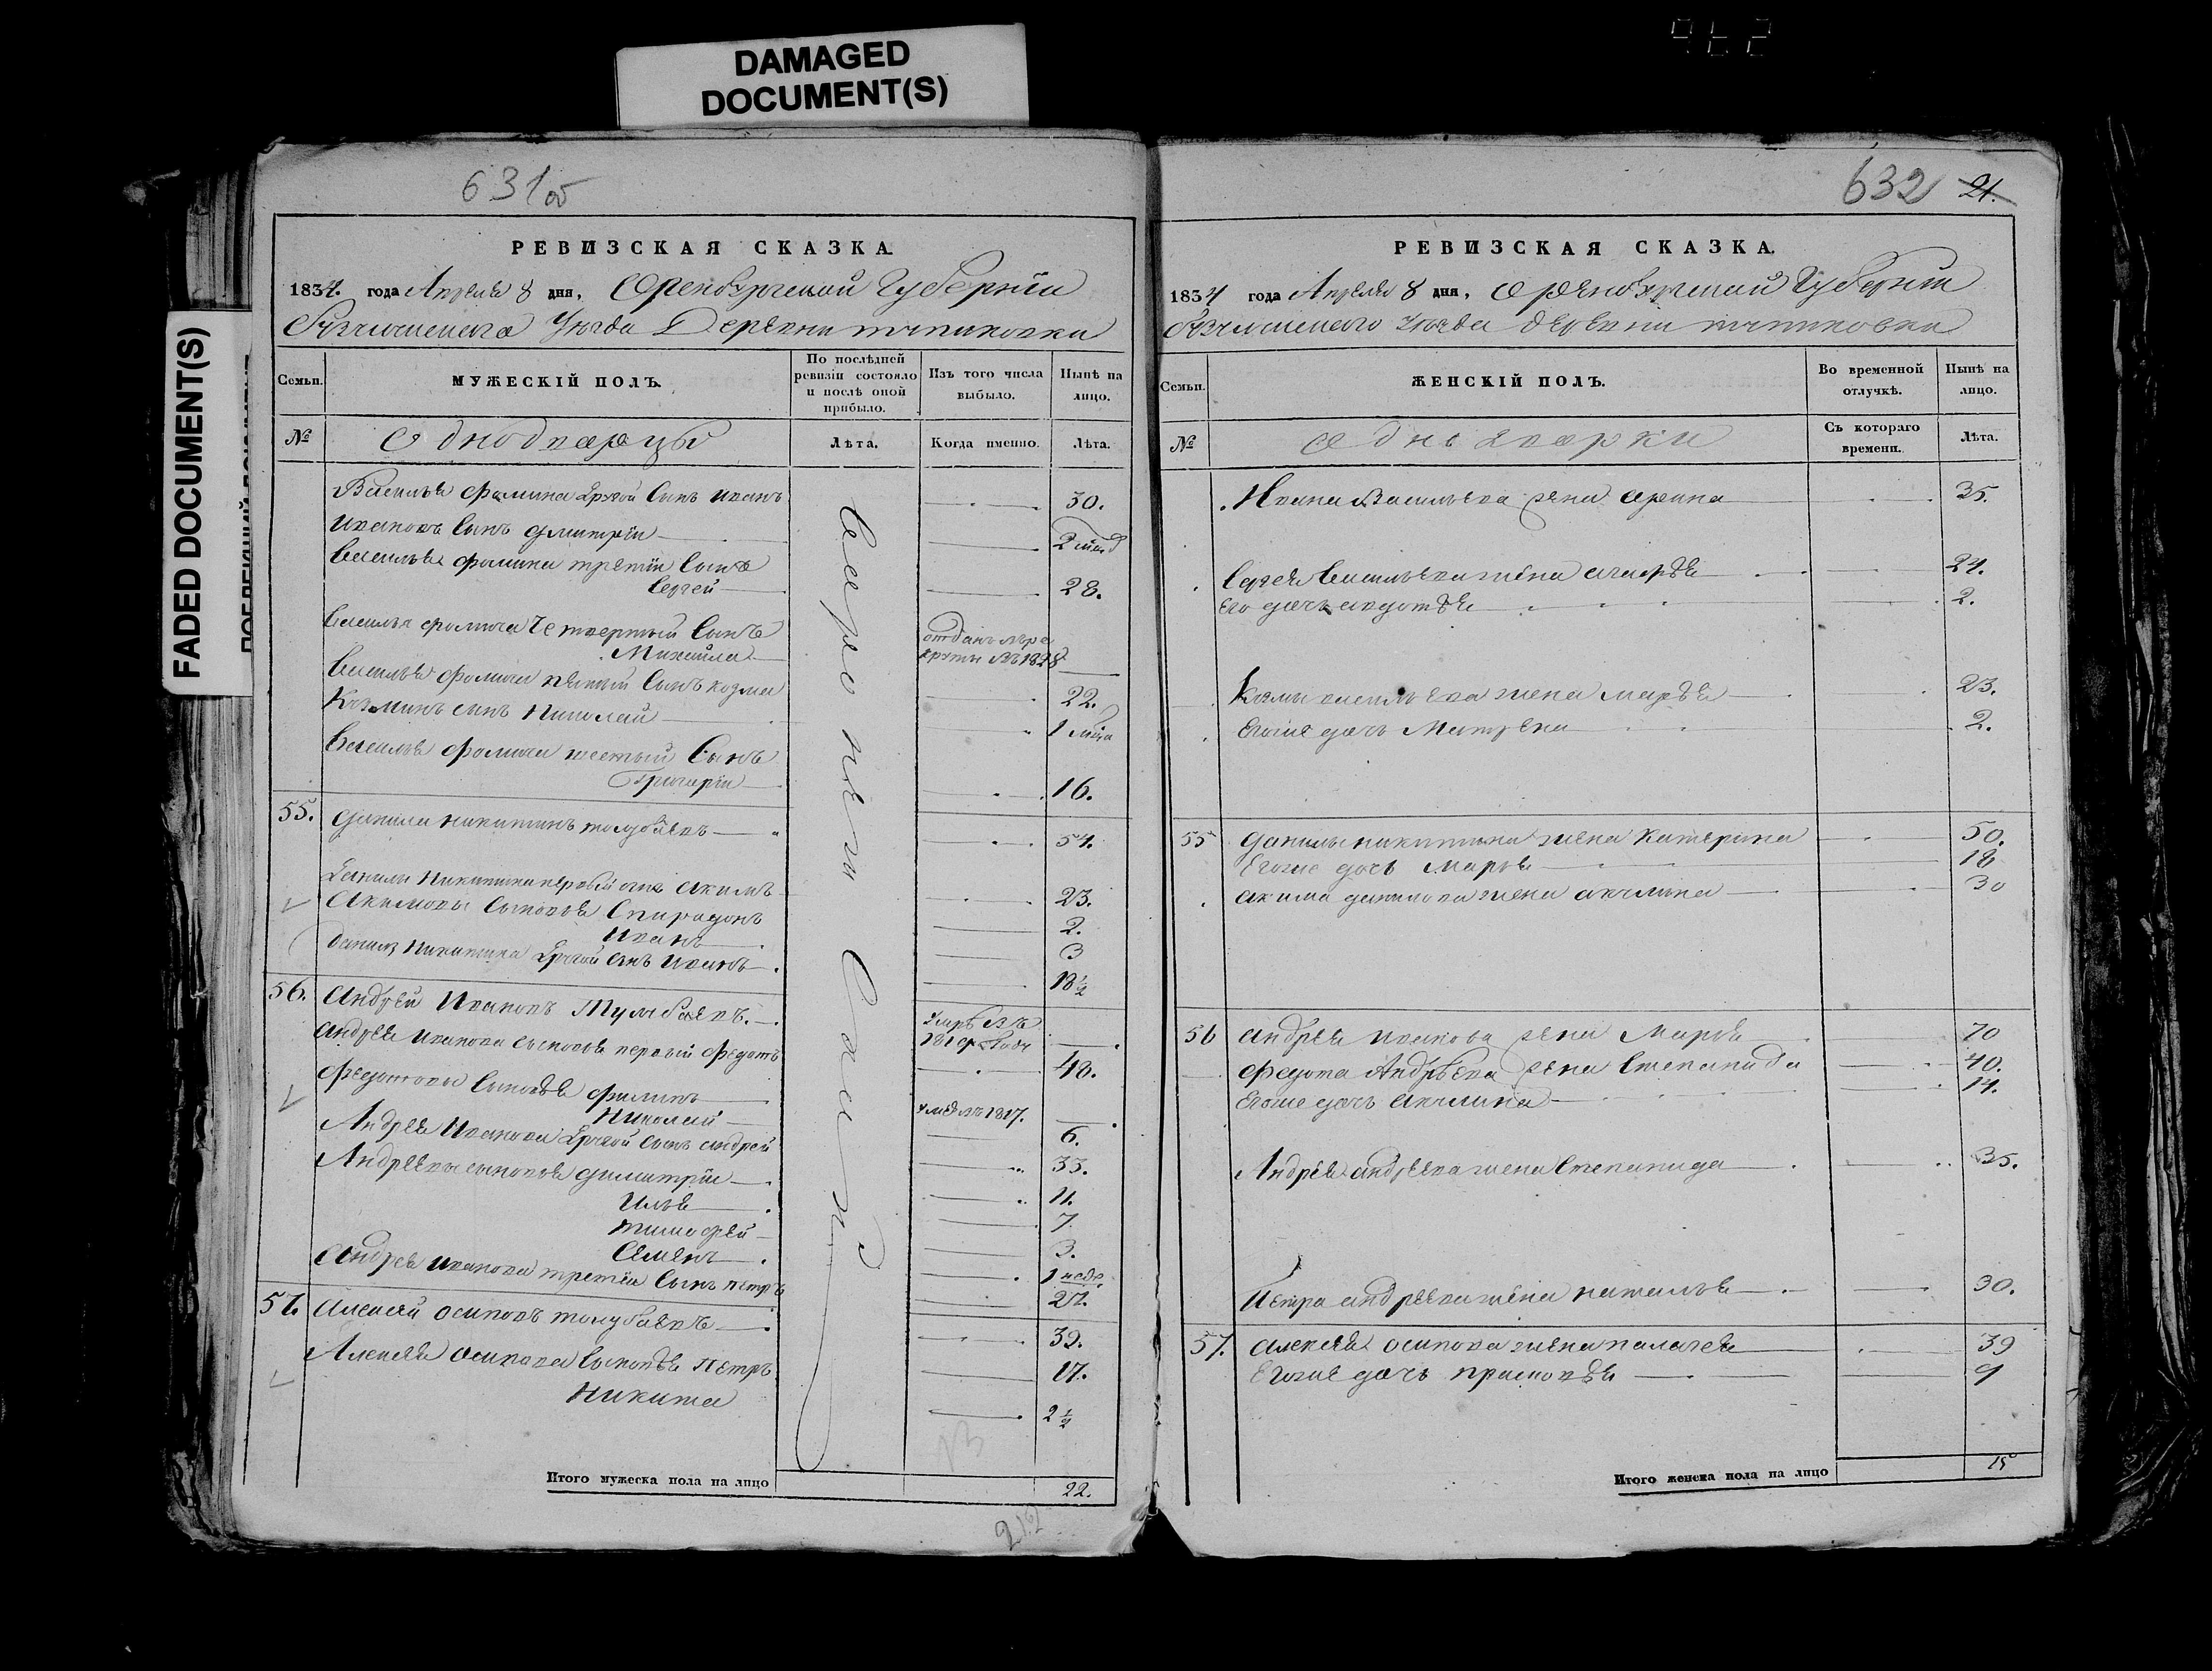 DAMAGED
DOCUMENT(S)
FADED DOCUMENT(S)
631об
РЕВИЗСКАЯ СКАЗКА.
1834. года Апреля 8 дня, Оренбургской Губерніи
Уезда Деревни
Семьи.
МУЖЕСКІЙ ПОЛЪ.
По послѣдней ревизіи состояло и послѣ оной прибыло.
Изъ того числа выбыло.
Нынѣ на лицо.
№
Однодворцы
Лѣта.
Когда именно.
Лѣта.
Василья Фомина другой Сынъ Иванъ 30.
Ивановъ Сынъ Дмитрій 2
Василья Фомина третій Сынъ
Сергей 28.
Василья Фомина Четвертый Сынъ отданъ въ ре
Михайла круты въ 1828
Василья Фомина пятый Сынъ Козма 22.
Кузминъ сынъ Николай 1
Василья Фомина шестый Сынъ
Григорій 16.
55. Данила Никитинъ 54.
Данилы Никитина первый сынъ Акимъ 23.
Акимовы Сыновья Спиридонъ 2.
Иванъ 3
Данилы Никитина другой Сынъ Иванъ 18 1/2
56. Андрей Ивановъ
Андрея Иванова сыновья первый Федотъ 48.
Федотовы Сыновья Филипъ 1817.
Николай 6.
Андрея Иванова другой сынъ Андрей 33.
Андреевы сыновья Димитрій 11.
Илья 7.
Тимофей 3.
Семенъ 1
Андрея Иванова третій Сынъ Петръ
57. Алексей Осиповъ 39.
Алексея Осипова Сыновья Петръ 17.
Никита 2 1/2
Итого мужеска пола на лицо 22.
632 21.
РЕВИЗСКАЯ СКАЗКА.
1834 года Апреля 8 дня, Оренбургской Губерніи
Уезда деревни
Семьи.
ЖЕНСКІЙ ПОЛЪ.
Во временной отлучкѣ.
Нынѣ на лицо.
№
Однодворки
Съ котораго времени.
Лѣта.
Ивана Васильева жена Арина 35.
Сергея Васильева жена 24.
Его дочь Авдотья 2.
Козмы Васильева жена Марья 23.
Егоже дочь Матрена 2.
55 Данилы Никитина жена Катерина 50.
Егоже дочь Марья 18
Акима Данилова жена Акулина 30
56 Андрея Иванова жена Марья 70
Федота Андреева жена Степанида 40.
Егоже дочь Акулина 14.
Андрея Андреева жена Степанида 35.
Петра Андреева жена Наталья 30.
57. Алексея Осипова жена Палагея 39
Егоже дочь Прасковья 9
Итого женска пола на лицо 15